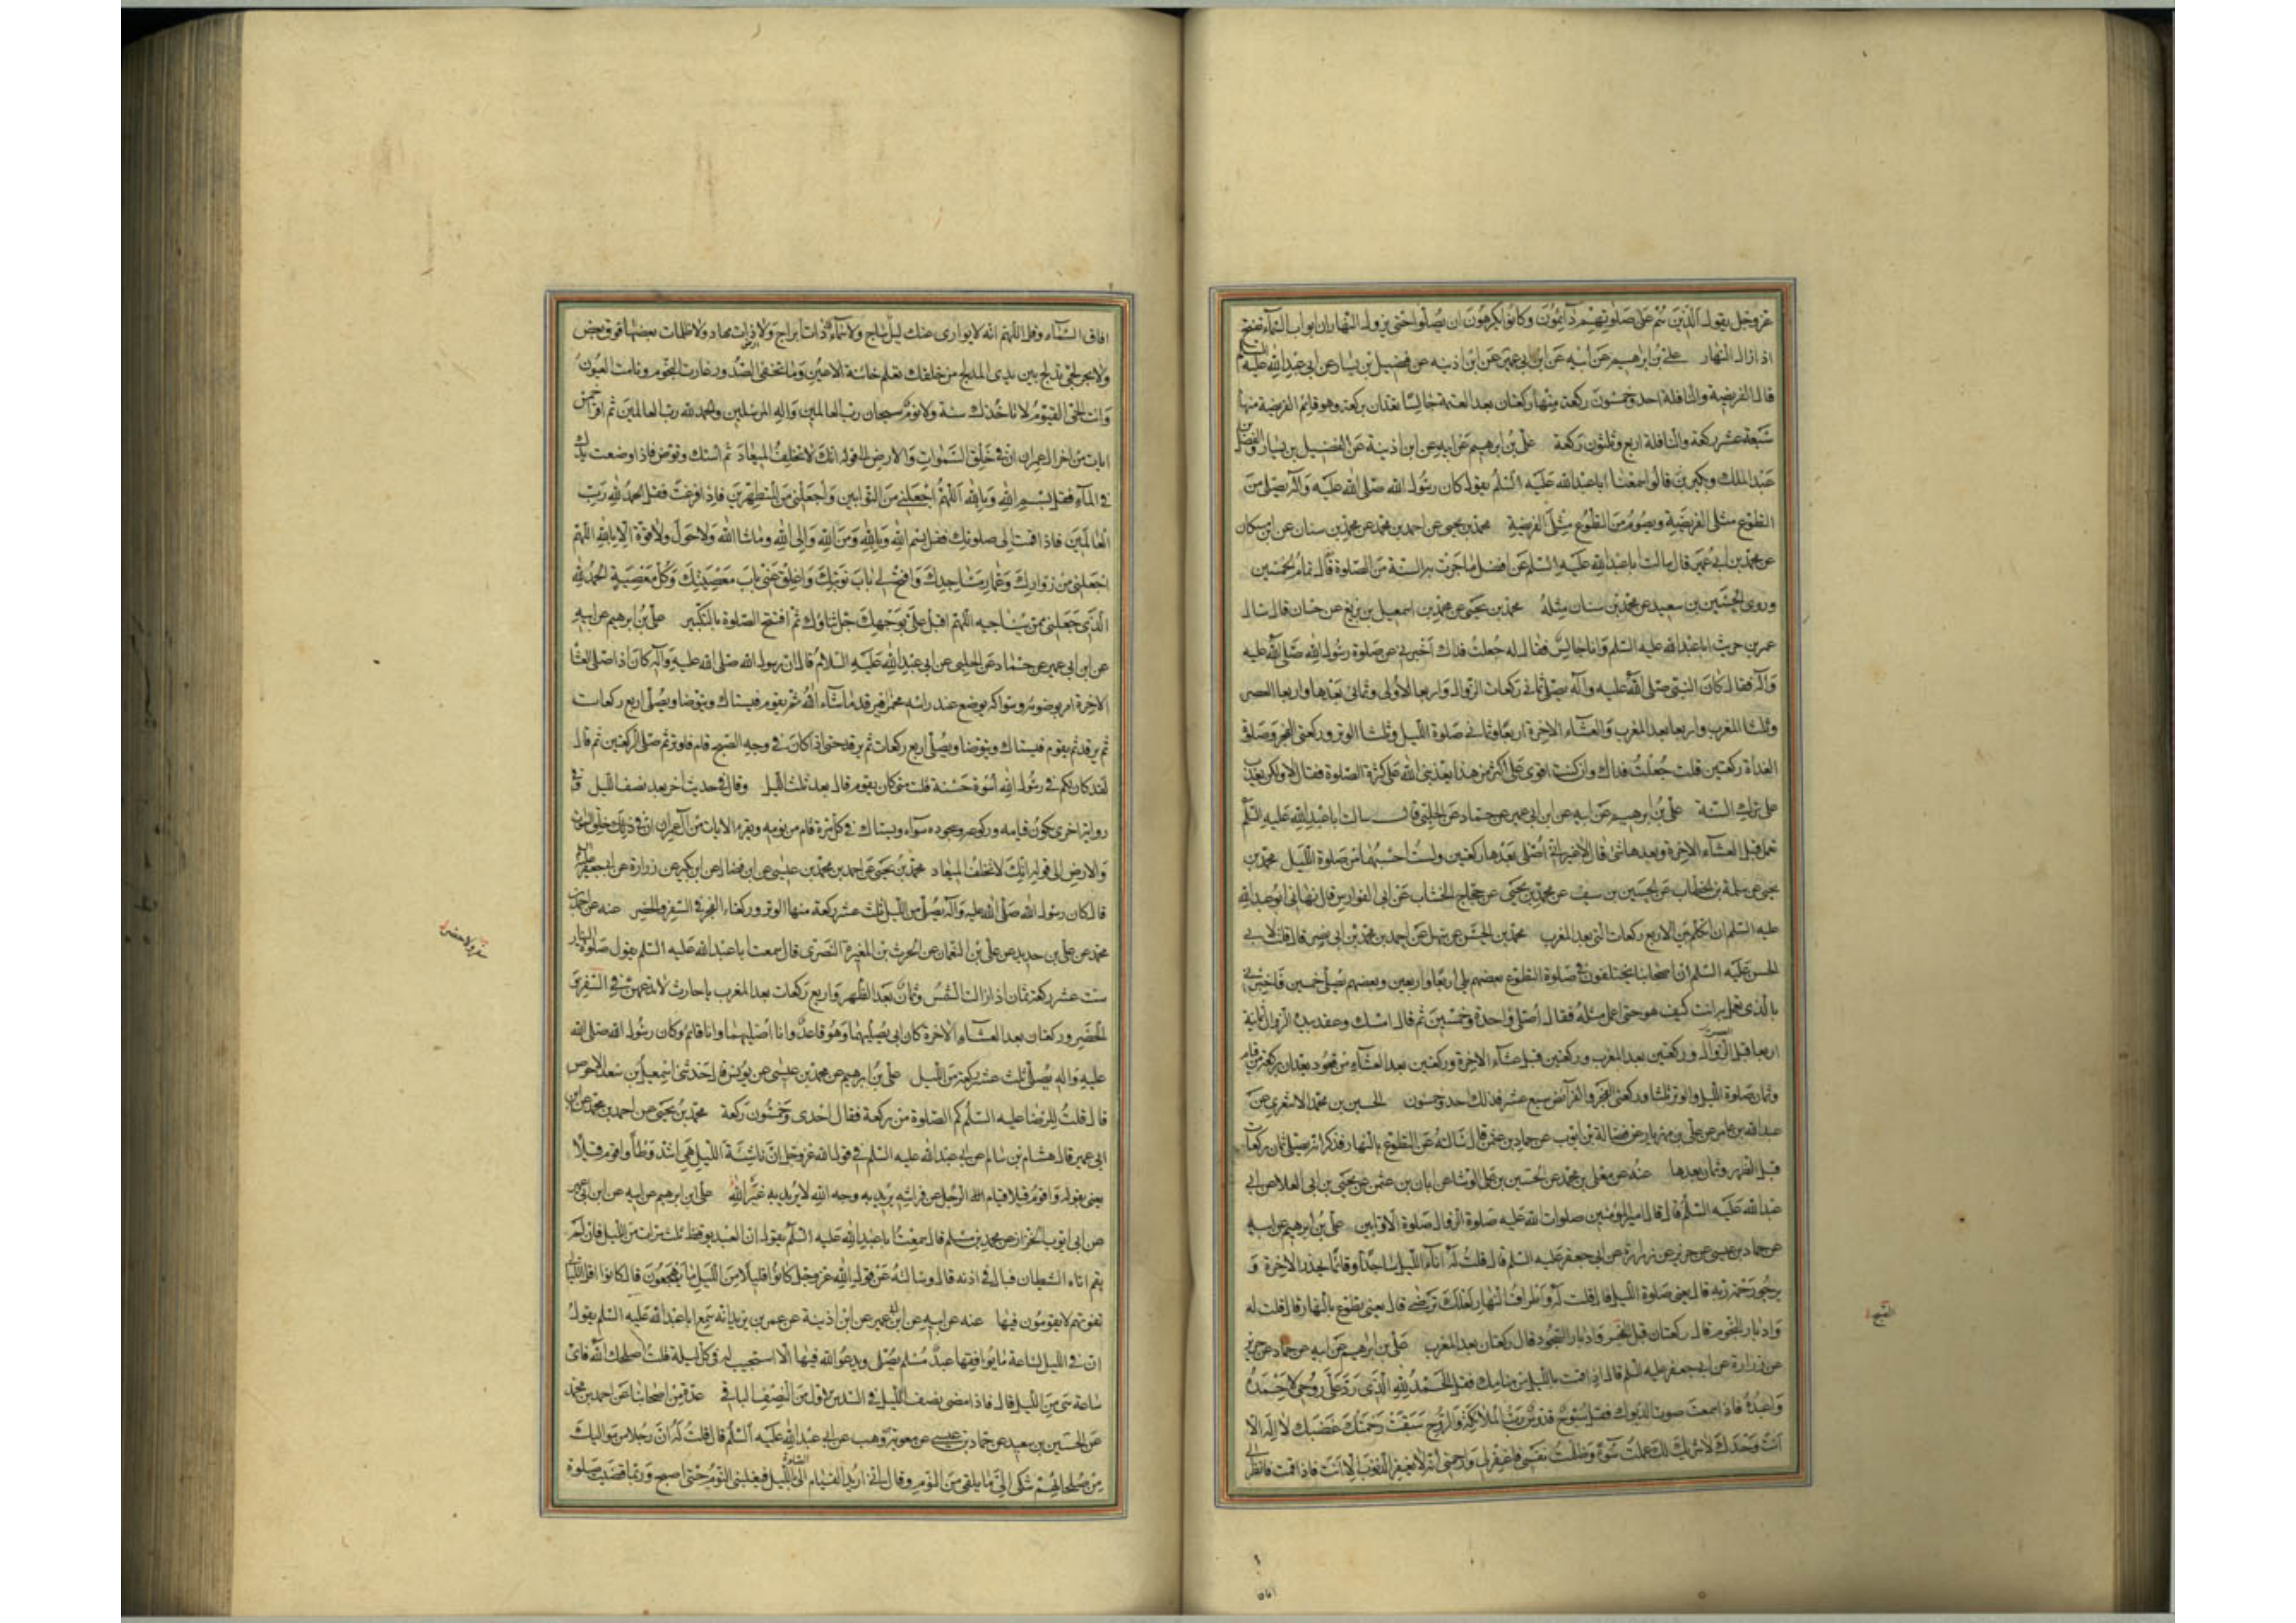 عز وجل يقول الذين هم على صلوتهم دآئمون وكانوا يكرهون ان يصلوا حتى يزول النهار ان ابواب السماء تفتح
اذا زال النهار على بن ابرهيم عن ابيه عن ابن ابى عمير عن ابن اذينه عن فضيل بن يسار عن ابى عبد الله عليه السلم
قال الفريضة والنافلة احد وخمسون ركعة منها ركعتان بعد العتمة جالسا تعدان بركعة وهو قائم الفريضة منها
سبعة عشر ركعة والنافلة اربع وثلثون ركعة على بن ابرهيم عن ابيه عن ابن اذينة عن الفضيل بن يسار والفضل بن
عبد الملك وبكير قالوا سمعنا ابا عبد الله عليه السلم يقول كان رسول الله صلى الله عليه وآله يصلى من
التطوع مثلى الفريضة ويصوم من التطوع مثلى الفريضة محمد بن يحيى عن احمد بن محمد عن محمد بن سنان عن ابن مسكان
عن محمد بن ابى عمير قال سالت ابا عبد الله عليه السلم عن افضل ما جرت به السنة من الصلوة قال تمام الخمسين
وروى الحسين بن سعيد عن محمد بن سنان مثله محمد بن يحيى عن محمد بن اسمعيل بن بزيع عن حنان قال سال
عمر بن حريث ابا عبد الله عليه السلم وانا جالس فقال له جعلت فداك اخبرنى عن صلوة رسول الله صلى الله عليه
وآله فقال كان النبى صلى الله عليه وآله يصلى ثمانى ركعات الزوال واربعا الاولى وثمانى بعدها واربعا العصر
وثلثا المغرب واربعا بعد المغرب والعشاء الاخرة اربعا وثمانى صلوة الليل وثلثا الوتر وركعتى الفجر وصلوة
الغداة ركعتين قلت جعلت فداك وان كنت اقوى على اكثر من هذا يعذبنى الله على كثرة الصلوة فقال لا ولكن يعذب
على ترك السنة على بن ابرهيم عن ابيه عن ابن ابى عمير عن حماد عن الحلبى قال سالت ابا عبد الله عليه السلم
هل قبل العشاء الاخرة وبعدها شئ قال لا غير انى اصلى بعدها ركعتين ولست احسبهما من صلوة الليل محمد بن
يحيى عن سلمة بن الخطاب عن الحسين بن سيف عن محمد بن يحيى عن حجاج الخشاب عن ابى الفوارس قال نهانى ابو عبد الله
عليه السلم ان اتكلم بين الاربع ركعات التى بعد المغرب محمد بن الحسن عن سهل عن احمد بن محمد بن ابى نصر قال قلت لابى
الحسن عليه السلم ان اصحابنا يختلفون فى صلوة التطوع بعضهم يصلى اربعا واربعين وبعضهم يصلى خمسين فاخبرنى
بالذى تعمل به انت كيف هو حتى اعمل بمثله فقال اصلى واحدة وخمسين ثم قال امسك وعقد بيده الزوال ثمانية
اربعا قبل العصر وركعتين بعد المغرب وركعتين قبل عشاء الاخرة وركعتين بعد العشاء من قعود يعدان بركعة من قيام
وثمان صلوة الليل والوتر ثلثا وركعتى الفجر والفرآئض سبع عشر فذلك احد وخمسون الحسين بن محمد الاشعرى عن
عبد الله بن عامر عن على بن مهزيار عن فضالة بن ايوب عن حماد بن عثمن قال سالته عن التطوع بالنهار فذكر انه يصلى ثمان ركعات
قبل الظهر وثمان بعدها عنه عن معلى بن محمد عن الحسين بن على الوشا عن ابان بن عثمن عن يحيى بن ابى العلا عن ابى
عبد الله عليه السلم قال قال امير المؤمنين صلوات الله عليه صلوة الزوال صلوة الاوابين على بن ابرهيم عن ابيه
عن حماد بن عيسى عن حريز عن زرارة عن ابى جعفر عليه السلم قال قلت له آناء الليل ساجدا وقائما يحذر الاخرة و
يرجو رحمة ربه قال يعنى صلوة الليل قال قلت له واطراف النهار لعلك ترضى قال يعنى يطوع بالنهار قال قلت له
وادبار النجوم قال ركعتان قبل الصبح وادبار السجود قال ركعتان بعد المغرب على بن ابرهيم عن ابيه عن حماد عن حريز
عن زرارة عن ابى جعفر عليه السلم قال اذا قمت بالليل من منامك فقل الحمد لله الذى رد على روحى لاحمده
واعبده فاذا سمعت صوت الديوك فقل سبوح قدوس رب الملائكة والروح سبقت رحمتك غضبك لا اله الا
انت وحدك لا شريك لك عملت سوء وظلمت نفسى فاغفر لى وارحمنى انه لا يغفر الذنوب الا انت فاذا قمت فانظر الى
افاق السماء وقل اللهم انه لا يوارى عنك ليل ساج ولا سماء ذات ابراج ولا ارض ذات مهاد ولا ظلمات بعضها فوق بعض
ولا بحر لجى تدلج بين يدى المدلج من خلقك تعلم خائنة الاعين وما تخفى الصدور غارت النجوم ونامت العيون
وانت الحى القيوم لا تاخذك سنة ولا نوم سبحان رب العالمين واله المرسلين والحمد لله رب العالمين ثم اقرا خمس
ايات من اخر ال عمران ان فى خلق السموات والارض الى قوله انك لا تخلف الميعاد ثم استك وتوض فاذا وضعت يدك
فى المآء فقل بسم الله وبالله اللهم اجعلنى من التوابين واجعلنى من المتطهرين فاذا فرغت فقل الحمد لله رب
العالمين فاذا قمت الى صلوتك فقل بسم الله وبالله ومن الله والى الله وما شا الله ولا حول ولا قوة الا بالله اللهم
اجعلنى من زوارك وعمار مساجدك وافتح لى باب توبتك واغلق عنى باب معصيتك وكل معصية الحمد لله
الذى جعلنى ممن يناجيه اللهم اقبل على بوجهك جل ثناؤك ثم افتتح الصلوة بالتكبير على بن ابرهيم عن ابيه
عن ابن ابى عمير عن حماد عن الحلبى عن ابى عبد الله عليه السلام قال ان رسول الله صلى الله عليه وآله كان اذا صلى العشا
الاخرة امر بوضوئه وسواكه يوضع عند راسه مخمرا فيرقد ما شاء الله ثم يقوم فيستاك ويتوضا ويصلى اربع ركعات
ثم يرقد ثم يقوم فيستاك ويتوضا ويصلى اربع ركعات ثم يرقد حتى اذا كان فى وجه الصبح قام فاوتر ثم صلى الركعتين ثم قال
لقد كان لكم فى رسول الله اسوة حسنة قلت متى كان يقوم قال بعد ثلث الليل وقال فى حديث اخر بعد نصف الليل وفى
رواية اخرى يكون قيامه وركوعه وسجوده سواء ويستاك فى كل مرة قام من نومه ويقرء الايات من آل عمران ان فى خلق السموات
والارض الى قوله انك لا تخلف الميعاد محمد بن يحيى عن احمد بن محمد بن عيسى عن ابن فضال عن ابن بكير عن زرارة عن ابى جعفر عليه السلم
قال كان رسول الله صلى الله عليه وآله يصلى من الليل ثلث عشر ركعة منها الوتر وركعتاء الفجر فى السفر والحضر عنه عن احمد بن
محمد عن على بن حديد عن على بن النعمان عن الحرث بن المغيرة النصرى قال سمعت ابا عبد الله عليه السلم يقول صلوة النهار
ست عشر ركعة ثمان اذا زالت الشمس وثمان بعد الظهر واربع ركعات بعد المغرب يا حارث لا تدعهن فى السفر و
الحضر وركعتان بعد العشاء الاخرة كان ابى يصليهما وهو قاعد وانا اصليهما وانا قائم وكان رسول الله صلى الله
عليه واله يصلى ثلث عشر ركعة من الليل على بن ابرهيم عن محمد بن عيسى عن يونس قال حدثنى اسمعيل بن سعد الاحوص
قال قلت للرضا عليه السلم كم الصلوة من ركعة فقال احدى وخمسون ركعة محمد بن يحيى عن احمد بن محمد عن ابن
ابى عمير قال هشام بن سالم عن ابى عبد الله عليه السلم فى قول الله عز وجل ان ناشئة الليل هى اشد وطأ واقوم قيلا
يعنى بقوله واقوم قيلا قيام الرجل عن فراشه يريد به وجه الله لا يريد به غير الله على بن ابرهيم عن ابيه عن ابن ابى عمير
عن ابى ايوب الخزاز عن محمد بن مسلم قال سمعت ابا عبد الله عليه السلم يقول ان العبد يوقظ ثلث مرات من الليل فان لم
يقم اتاه الشيطان فبال فى اذنه قال وسالته عن قول الله عز وجل كانوا قليلا من الليل ما يهجعون قال كانوا اقل الليالى
تفوتهم لا يقومون فيها عنه عن ابيه عن ابن ابى عمير عن ابن اذينة عن عمر بن يزيد انه سمع ابا عبد الله عليه السلم يقول
ان فى الليل لساعة ما يوافقها عبد مسلم يصلى ويدعو الله فيها الا استجيب له فى كل ليلة قلت اصلحك الله فاى
ساعة هى من الليل قال فاذا مضى نصف الليل فى السدس الاول من النصف الباقى عدة من اصحابنا عن احمد بن محمد
عن الحسين بن سعيد عن حماد بن عيسى عن معوية بن وهب عن ابى عبد الله عليه السلم قال قلت له ان رجلا من مواليك
من صلحائهم شكى الى ما يلقى من النوم وقال انى اريد القيام الى الصلوة بالليل فيغلبنى النوم حتى اصبح وربما قضيت صلوة